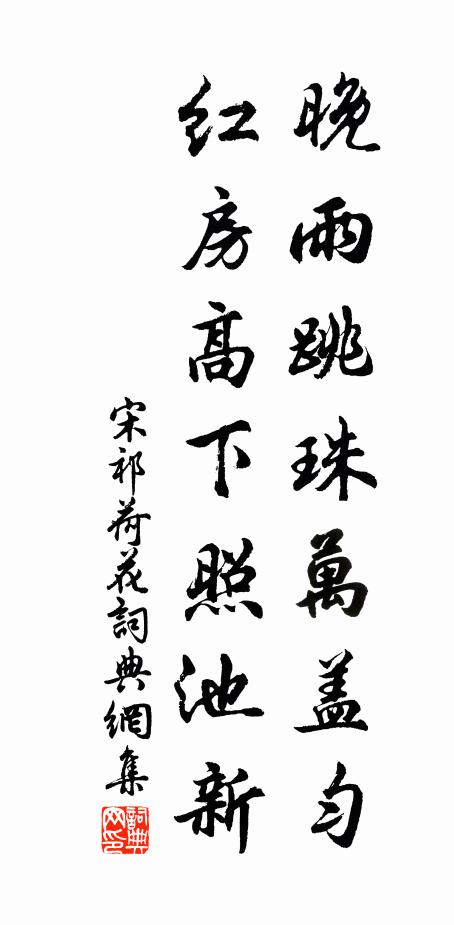 晚雨跳珠萬盖匀
红房高下照池新
宋祁荷花詞典網集
詞典網印